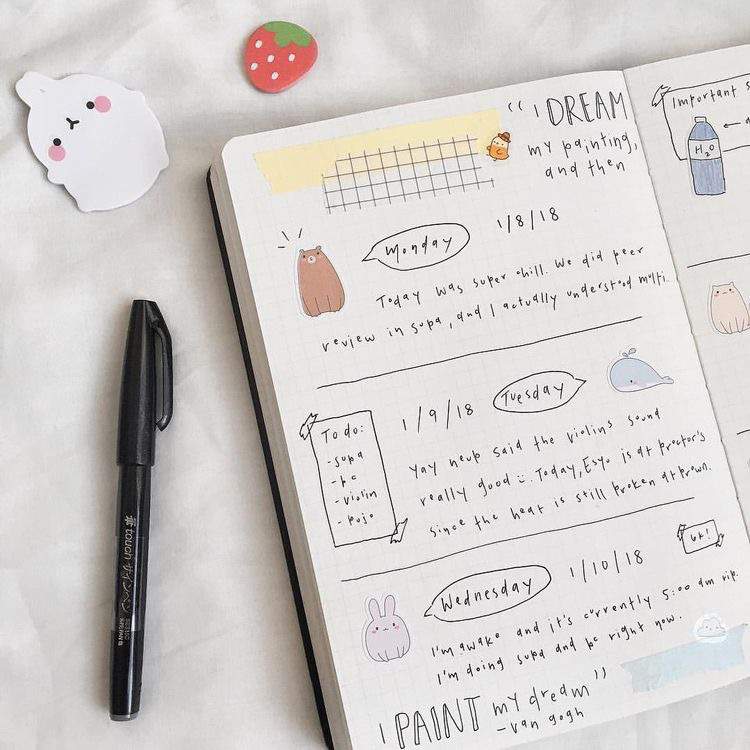 “I DREAM
my painting,
and then
Monday
1/8/18
Today was super chill. We did peer
review in supa, and I actually understood multi.
To do:
-supa
-pc
-violin
-pojo
1/9/18
Tuesday
Yay neup said the violins sound
really good Today, Esyo is at proctor's
since the heat is still broken at prown.
Wednesday
1/10/18
I'm awake and it's currently 5:00 am rip.
I'm doing supa and pc right now.
I PAINT my dream”
-van gogh
Important
H₂O
touch サインペン